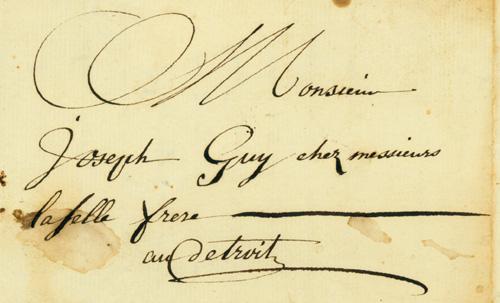 Monsieur
Joseph Guy chez messieurs
laselle frere
au Detroit